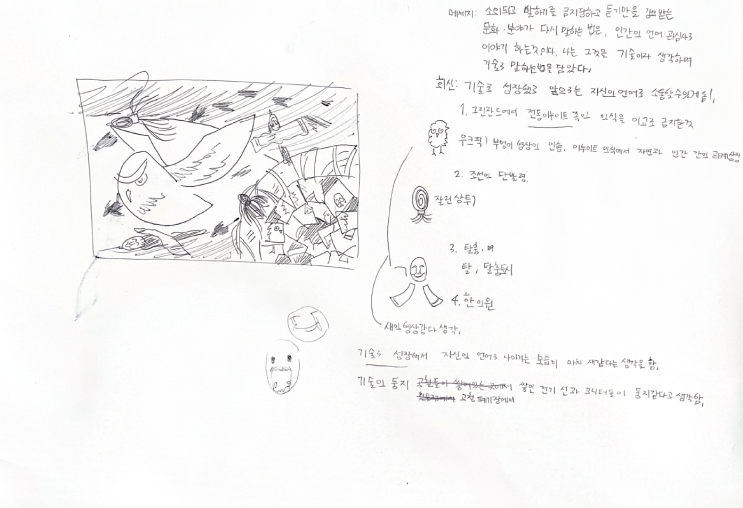 메세지: 소외되고 말하기를 금지당하고 듣기만을 강요받는
문화·분야가 다시 말하는 법은, 인간의 언어·관심사로
이야기 하는것이다. 나는 그것은 기술이라 생각하며
기술로 말하는법을 담았다.
회신: 기술로 성장하고 앞으로는 자신의 언어로 소통할수있게 됨.
1. 그린란드에서 전통이누이트 족의 의식을 이교로 금지한것
부엉이 형상의 인형, 이누이트 의식에서 자연과 인간 간의
2. 조선의 단발령
잘린 상투
3. 탈춤,
탈, 탈춤
4. 한의원
새의 형상같다 생각.
기술로 성장해서 자신의 언어로 나아가는 모습이 마치 새같다는 생각을 함.
기술의 둥지 쌓인 전기선과 모니터들이 둥지같다고 생각함.
고철 폐기장에서